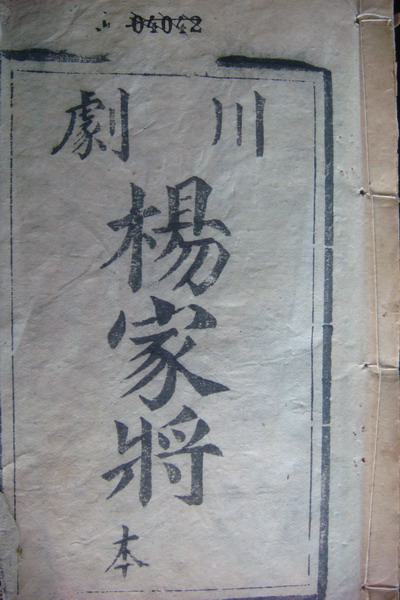 04042
川劇
楊家將
本